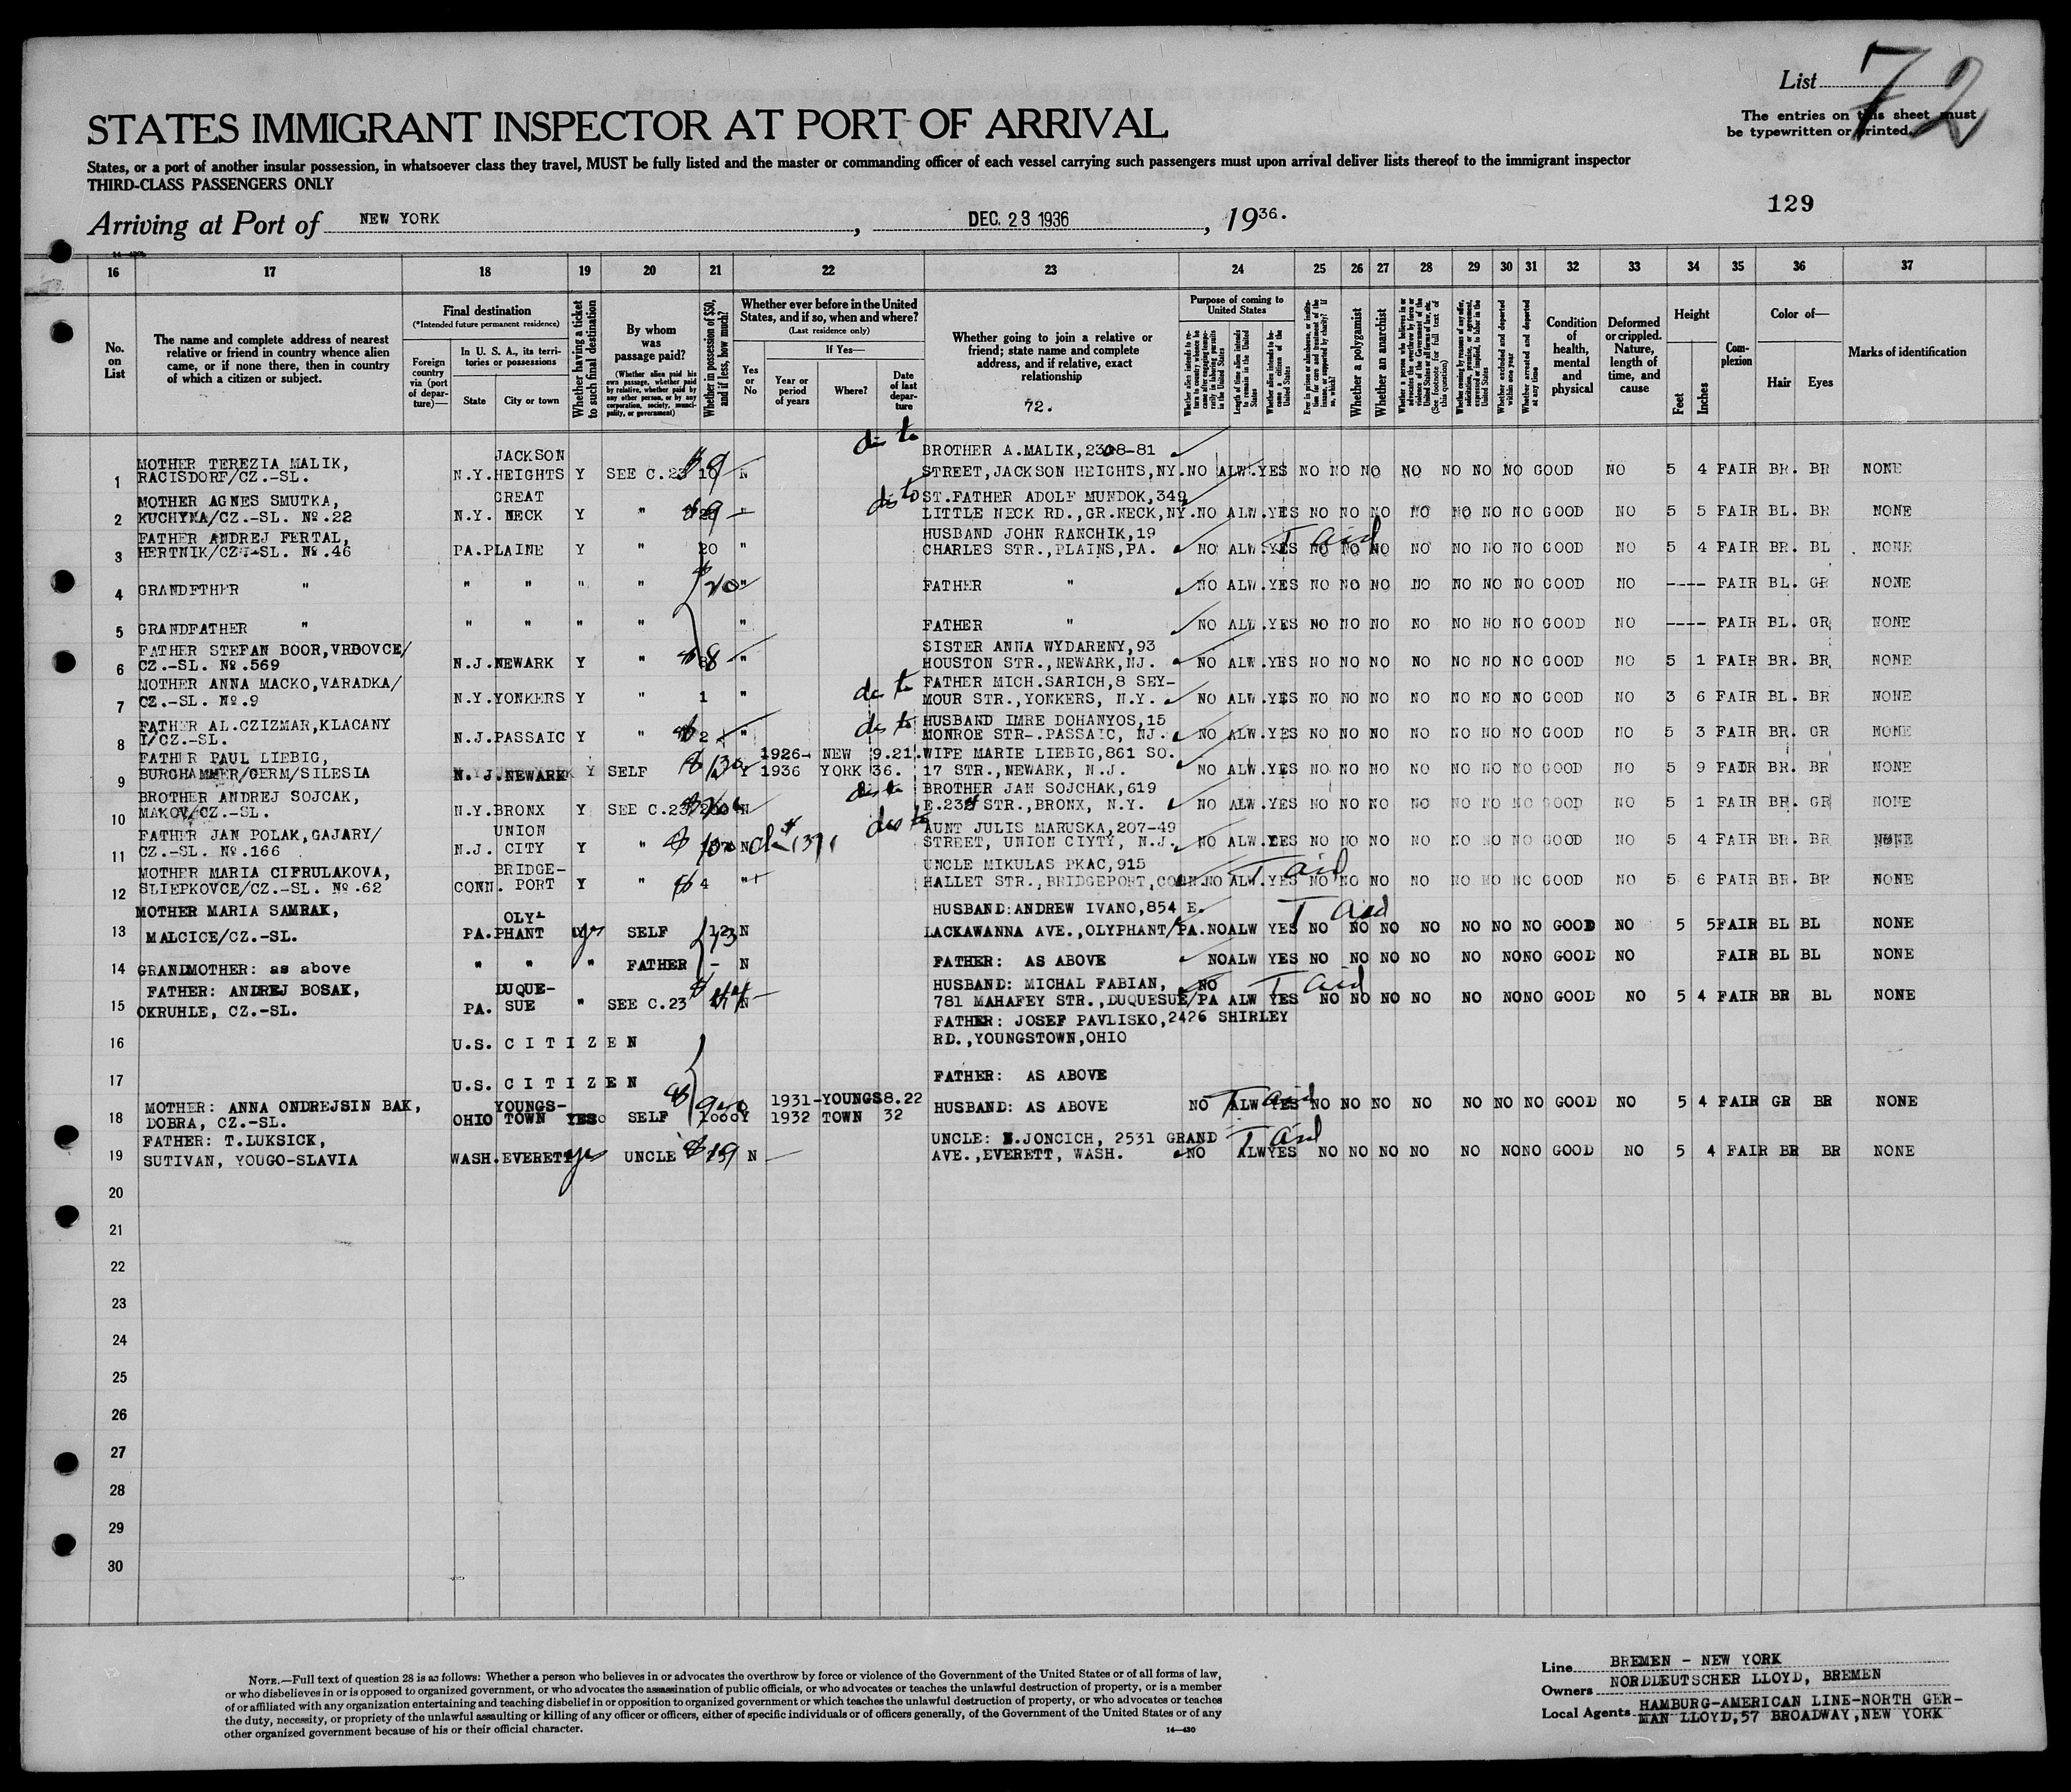 List 72
The entries on this sheet must
be typewritten or printed.
STATES IMMIGRANT INSPECTOR AT PORT OF ARRIVAL
States, or a port of another insular possession, in whatsoever class they travel, MUST be fully listed and the master or commanding officer of each vessel carrying such passengers must upon arrival deliver lists thereof to the immigrant inspector
THIRD-CLASS PASSENGERS ONLY
129
Arriving at Port of NEW YORK, DEC. 23 1936, 1936.
16 17 18 19 20 21 22 23 24 25 26 27 28 29 30 31 32 33 34 35 36 37
No. on List
The name and complete address of nearest relative or friend in country whence alien came, or if none there, then in country of which a citizen or subject.
Final destination
(*Intended future permanent residence)
Foreign country via (port of departure)—
In U. S. A., its territories or possessions
State City or town
Whether having a ticket to such final destination
By whom was passage paid?
(Whether alien paid his own passage, whether paid by relative, whether paid by any other person, or by any corporation, society, municipality, or government)
Whether in possession of $50, and if less, how much?
Whether ever before in the United States, and if so, when and where?
(Last residence only)
Yes or No
If Yes—
Year or period of years
Where?
Date of last departure
Whether going to join a relative or friend; state name and complete address, and if relative, exact relationship
72.
Purpose of coming to United States
Whether alien intends to return to country whence he came after engaging temporarily in laboring pursuits in the United States
Length of time alien intends to remain in the United States
Whether alien intends to become a citizen of the United States
Ever in prison or almshouse, or institution for care and treatment of the insane, or supported by charity? If so, which?
Whether a polygamist
Whether an anarchist
Whether a person who believes in or advocates the overthrow by force or violence of the Government of the United States or all forms of law, etc. (See footnote for full text of this question)
Whether coming by reason of any offer, solicitation, promise, or agreement, expressed or implied, to labor in the United States
Whether excluded and deported within one year
Whether arrested and deported at any time
Condition of health, mental and physical
Deformed or crippled. Nature, length of time, and cause
Height
Feet Inches
Complexion
Color of—
Hair Eyes
Marks of identification
JACKSON BROTHER A.MALIK,2308-81
1 MOTHER TEREZIA MALIK,
RACISDORF/CZ.-SL. N.Y. HEIGHTS Y SEE C.23 10 N STREET,JACKSON HEIGHTS,NY. NO ALW. YES NO NO NO NO NO NO NO GOOD NO 5 4 FAIR BR. BR NONE
MOTHER AGNES SMUTKA, GREAT ST.FATHER ADOLF MUNDOK,349
2 KUCHYNA/CZ.-SL. No.22 N.Y. NECK Y " N LITTLE NECK RD.,GR.NECK,NY. NO ALW. YES NO NO NO NO NO NO NO GOOD NO 5 5 FAIR BL. BR NONE
FATHER ANDREJ FERTAL, HUSBAND JOHN RANCHIK,19
3 HERTNIK/CZ.-SL. No.46 PA. PLAINE Y " 20 " CHARLES STR.,PLAINS,PA. NO ALW. YES NO NO NO NO NO NO NO GOOD NO 5 4 FAIR BR. BL NONE
T Aid
4 GRANDFTHER " " " " " $20 " FATHER " NO ALW. YES NO NO NO NO NO NO NO GOOD NO ---- FAIR BL. GR NONE
5 GRANDFATHER " " " " " " FATHER " NO ALW. YES NO NO NO NO NO NO NO GOOD NO ---- FAIR BL. GR NONE
FATHER STEFAN BOOR,VRBOVCE/ SISTER ANNA WYDARENY,93
6 CZ.-SL. No.569 N.J. NEWARK Y " $8 " HOUSTON STR.,NEWARK,NJ. NO ALW. YES NO NO NO NO NO NO NO GOOD NO 5 1 FAIR BR. BR NONE
MOTHER ANNA MACKO,VARADKA/ FATHER MICH.SARICH,8 SEY-
7 CZ.-SL. No.9 N.Y. YONKERS Y " 1 " MOUR STR.,YONKERS, N.Y. NO ALW. YES NO NO NO NO NO NO NO GOOD NO 3 6 FAIR BL. BR NONE
FATHER AL.CZIZMAR,KLACANY HUSBAND IMRE DOHANYOS,15
8 I/CZ.-SL. N.J. PASSAIC Y " $2 " MONROE STR-.PASSAIC, NJ. NO ALW. YES NO NO NO NO NO NO NO GOOD NO 5 3 FAIR BR. GR NONE
FATHER PAUL LIEBIG, 1926- NEW 9.21. WIFE MARIE LIEBIG,861 SO.
9 BURGHAMMER/GERM/SILESIA N.J. NEWARK Y SELF Y 1936 YORK 36. 17 STR.,NEWARK, N.J. NO ALW. YES NO NO NO NO NO NO NO GOOD NO 5 9 FAIR BR. BR NONE
BROTHER ANDREJ SOJCAK, BROTHER JAN SOJCHAK,619
10 MAKOV/CZ.-SL. N.Y. BRONX Y SEE C.23 N STR.,BRONX, N.Y. NO ALW. YES NO NO NO NO NO NO NO GOOD NO 5 1 FAIR BR. GR NONE
FATHER JAN POLAK,GAJARY/ UNION AUNT JULIS MARUSKA,207-49
11 CZ.-SL. No.166 N.J. CITY Y " N STREET, UNION CIYTY, N.J. NO ALW. YES NO NO NO NO NO NO NO GOOD NO 5 4 FAIR BR. BR NONE
MOTHER MARIA CIFRULAKOVA, BRIDGE- UNCLE MIKULAS PKAC,915
12 SLIEPKOVCE/CZ.-SL. No.62 CONN. PORT Y " $4 " HALLET STR.,BRIDGEPORT,CONN. NO ALW. YES NO NO NO NO NO NO NO GOOD NO 5 6 FAIR BR. BR NONE
T Aid
MOTHER MARIA SAMRAK, OLY- HUSBAND:ANDREW IVANO,854 E.
13 MALCICE/CZ.-SL. PA. PHANT yes SELF 13 N LACKAWANNA AVE.,OLYPHANT/PA. NO ALW YES NO NO NO NO NO NO NO GOOD NO 5 5 FAIR BL BL NONE
T Aid
14 GRANDMOTHER: as above " " " FATHER - N FATHER: AS ABOVE NO ALW YES NO NO NO NO NO NO NO GOOD NO FAIR BL BL NONE
FATHER: ANDREJ BOSAK, DUQUE- HUSBAND: MICHAL FABIAN, NO
15 OKRUHLE, CZ.-SL. PA. SUE " SEE C.23 N 781 MAHAFEY STR.,DUQUESUE/PA ALW YES NO NO NO NO NO NO NO GOOD NO 5 4 FAIR BR BL NONE
T Aid
FATHER: JOSEF PAVLISKO,2426 SHIRLEY
16 U.S. CITIZEN RD.,YOUNGSTOWN,OHIO
17 U.S. CITIZEN FATHER: AS ABOVE
MOTHER: ANNA ONDREJSIN BAK, YOUNGS- 1931- YOUNGS 8.22
18 DOBRA, CZ.-SL. OHIO TOWN YES SELF 1000 Y 1932 TOWN 32 HUSBAND: AS ABOVE NO ALW YES NO NO NO NO NO NO NO GOOD NO 5 4 FAIR GR BR NONE
T Aid
FATHER: T.LUKSICK, UNCLE: .JONCICH, 2531 GRAND
19 SUTIVAN, YOUGO-SLAVIA WASH. EVERETT yes UNCLE $19 N AVE.,EVERETT, WASH. NO ALW YES NO NO NO NO NO NO NO GOOD NO 5 4 FAIR BR BR NONE
T Aid
20
21
22
23
24
25
26
27
28
29
30
NOTE.—Full text of question 28 is as follows: Whether a person who believes in or advocates the overthrow by force or violence of the Government of the United States or of all forms of law,
or who disbelieves in or is opposed to organized government, or who advocates the assassination of public officials, or who advocates or teaches the unlawful destruction of property, or is a member
of or affiliated with any organization entertaining and teaching disbelief in or opposition to organized government or which teaches the unlawful destruction of property, or who advocates or teaches
the duty, necessity, or propriety of the unlawful assaulting or killing of any officer or officers, either of specific individuals or of officers generally, of the Government of the United States or of any
other organized government because of his or their official character.
14—430
Line BREMEN - NEW YORK
Owners NORDDEUTSCHER LLOYD, BREMEN
Local Agents HAMBURG-AMERICAN LINE-NORTH GER-
MAN LLOYD,57 BROADWAY,NEW YORK